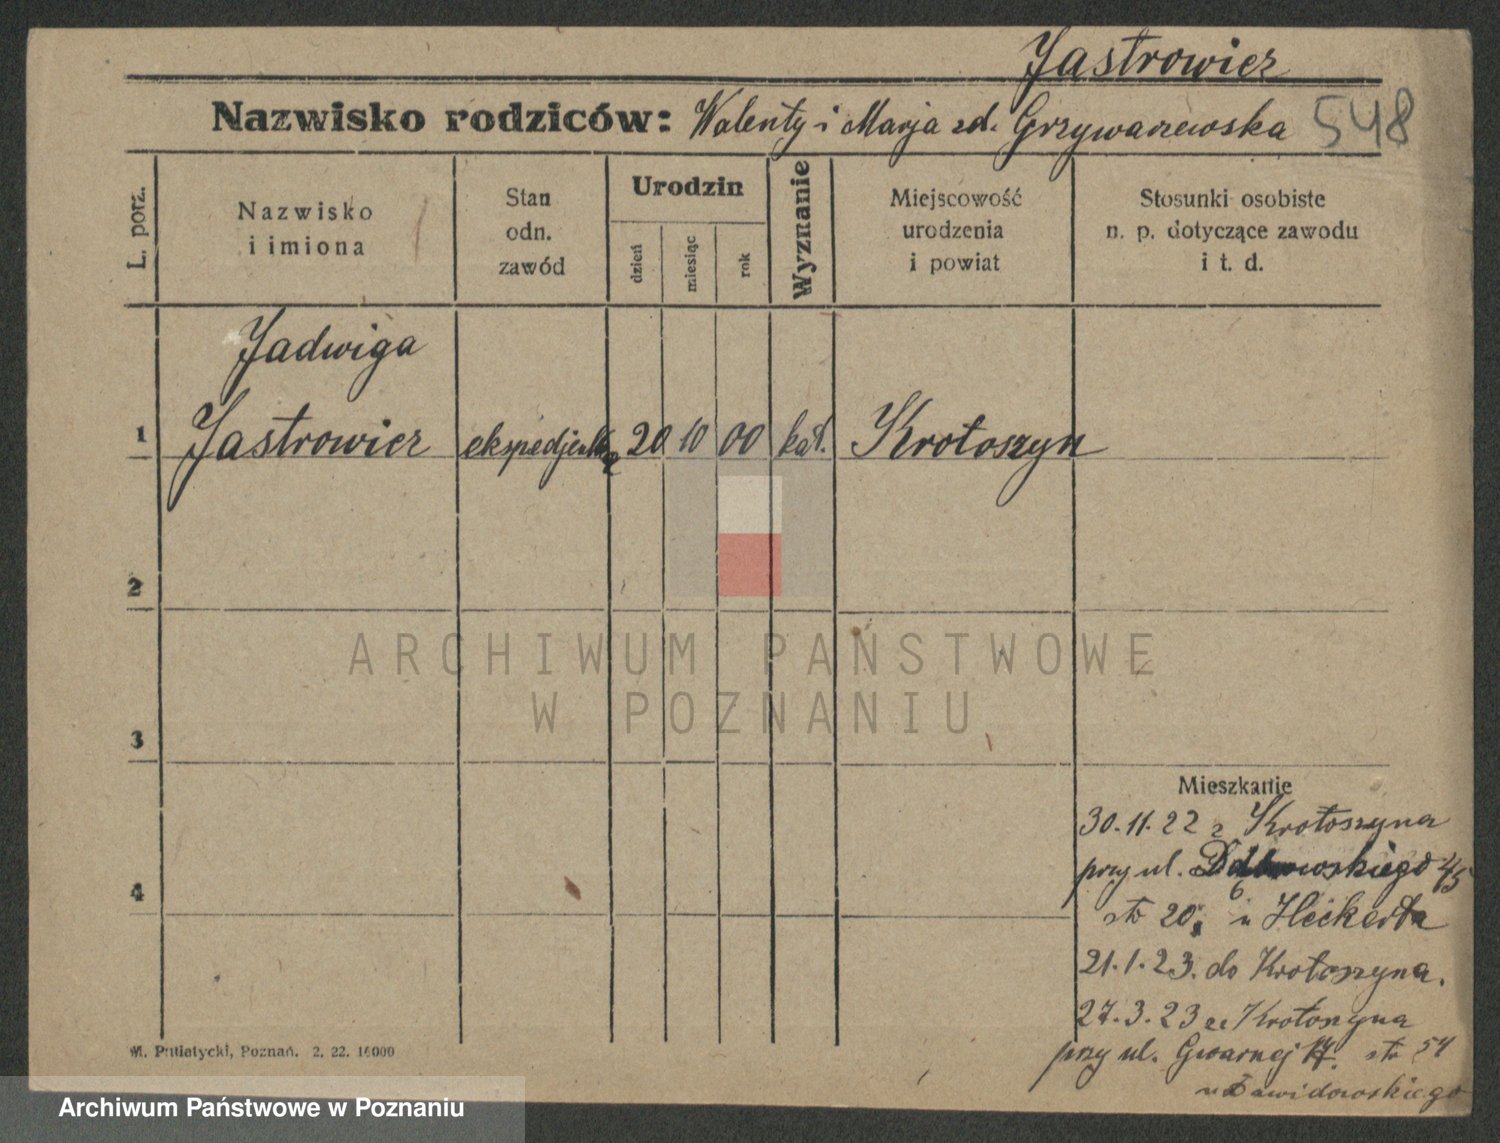 Jastrowicz
Nazwisko rodziców: Walenty i Marja zd. Grzywaczewska 548
L. porz.
Nazwisko
i imiona
Stan
odn.
zawód
Urodzin
dzień
miesiąc
rok
Wyznanie
Miejscowość
urodzenia
i powiat
Stosunki osobiste
n. p. dotyczące zawodu
i t. d.
Jadwiga
1 Jastrowicz ekspedjentka 20 10 00 kat. Krotoszyn
2
ARCHIWUM PAŃSTWOWE
W POZNANIU
3
Mieszkanie
30.11.22 z Krotoszyna
przy ul. 45
4
str 20 6 u Heckerta
21.1.23. do Krotoszyna.
27.3.23 ze Krotoszyna
przy ul. Gwarnej 17. str 54
u Dawidowskiego
M. Putiatycki, Poznań. 2. 22. 16000
Archiwum Państwowe w Poznaniu